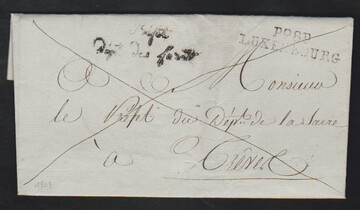 Préfet
Dépt. des forêts
P98P
LUXEMBOURG
A Monsieur
le Préfet du Dépt. de la Sarre
à Trèves